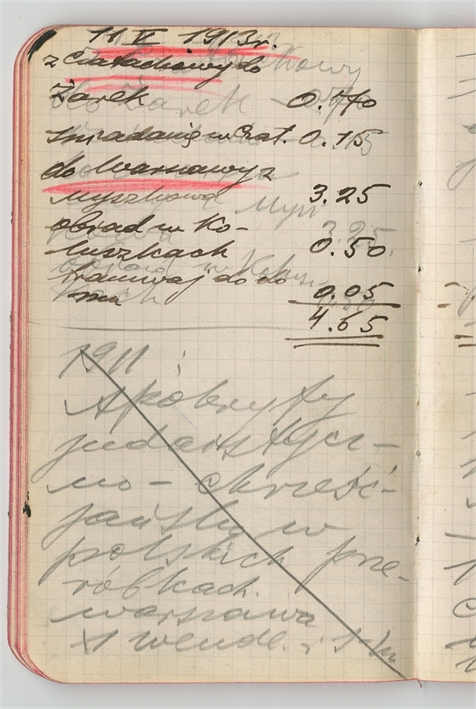 11 V 1913 r.
z Ciałachowy do
Żarek 0.70
śniadanie w Czst. 0.15
do Warszawy z
Myszkowa 3.25
obiad w Ko-
luszkach 0.50
tramwaj do do
mu 0.05
4.65
1911
Apokryfy
judaistycz-
no - chrześć-
jańskie w
polskich prze-
róbkach.
warszawa
Wende i S-ka